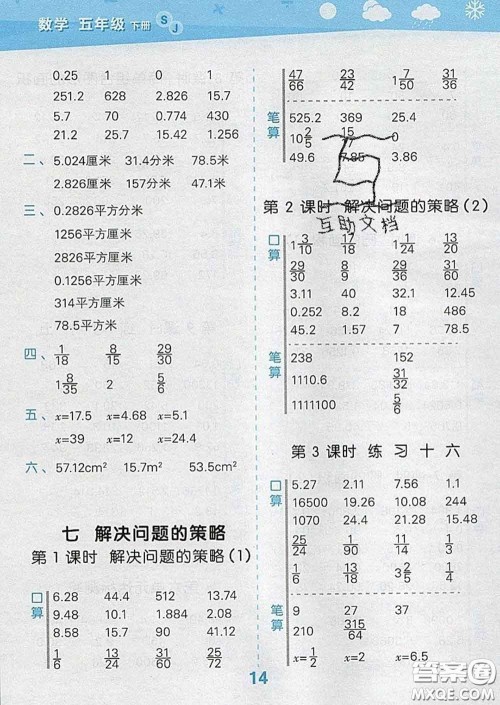 数学 五年级 下册 SJ
0.25 1 0 1
251.2 628 2.826 15.7
5.7 70 0.774 430
21.2 25.7 15.42 1.256
二、 5.024厘米 31.4分米 78.5米
2.826米 157米 47.1米
三、 0.2826平方分米
1256平方厘米
2826平方厘米
0.1256平方米
314平方厘米
78.5平方米
四、 1/18 8/15 29/30
1 8/35 2 5/6
五、 x=17.5 x=4.68 x=5.1
x=39 x=12 x=24.4
六、 57.12cm² 15.7m² 53.5cm²
七 解决问题的策略
第1课时 解决问题的策略(1)
口算
6.28 44.4 512 13.74
9.48 10.1 1.884 2.08
8.58 15.7 90 131.9
1/6 13/24 31/60 25/72
47/66 23/42 1 7/50 31/36
笔算
525.2 369 25.4
10 2/15 0
49.6 7.85 3.86
第2课时 解决问题的策略(2)
互助文档
口算
1 3/10 17/18 1 1/24 13/20
29/30 8/9 29/36 31/33
3.11 40 32.1 12.45
0.252 8.2 18 20
45.2 1.57 7 138.7
笔算
238 152
1110.6 31/32
1111100 5/6
第3课时 练习十六
口算
5.27 2.11 7.56 1.1
16500 19.26 10.08 244
1070 24.4 21.48 28.26
25/24 1/90 11/14 3/4
1/6 13/63 13/14 1 1/3
笔算
9 27 37
210 315/64
x=1/2 x=2 x=6.5
14
答案圈
MXQE.COM